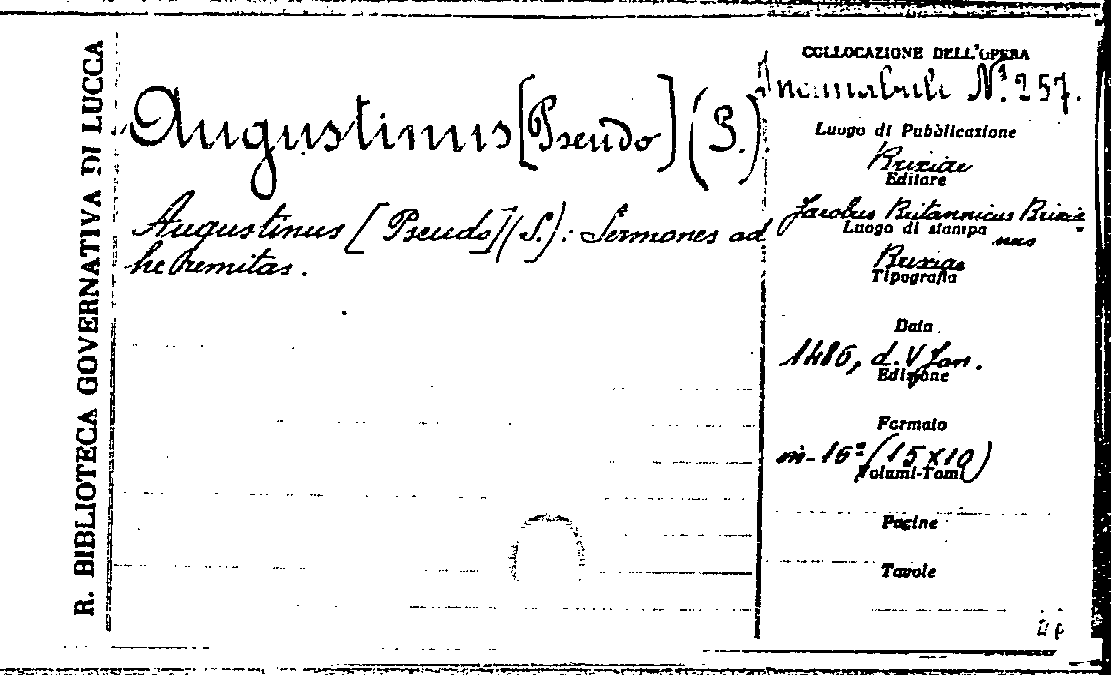 R. BIBLIOTECA GOVERNATIVA DI LUCCA
Augustinus [Pseudo] (S.)
Augustinus [Pseudo] (S.): Sermones ad
heremitas.
COLLOCAZIONE DELL'OPERA
Incunabulo N.º 257.
Luogo di Pubblicazione
Brixiae
Editore
Jacobus Britannicus Brixia-
nus
Luogo di stampa
Brixiae
Tipografia
Data
1486, d. V Jan.
Edizione
Formato
in-16º (15x10)
Volumi-Tomi
Pagine
Tavole